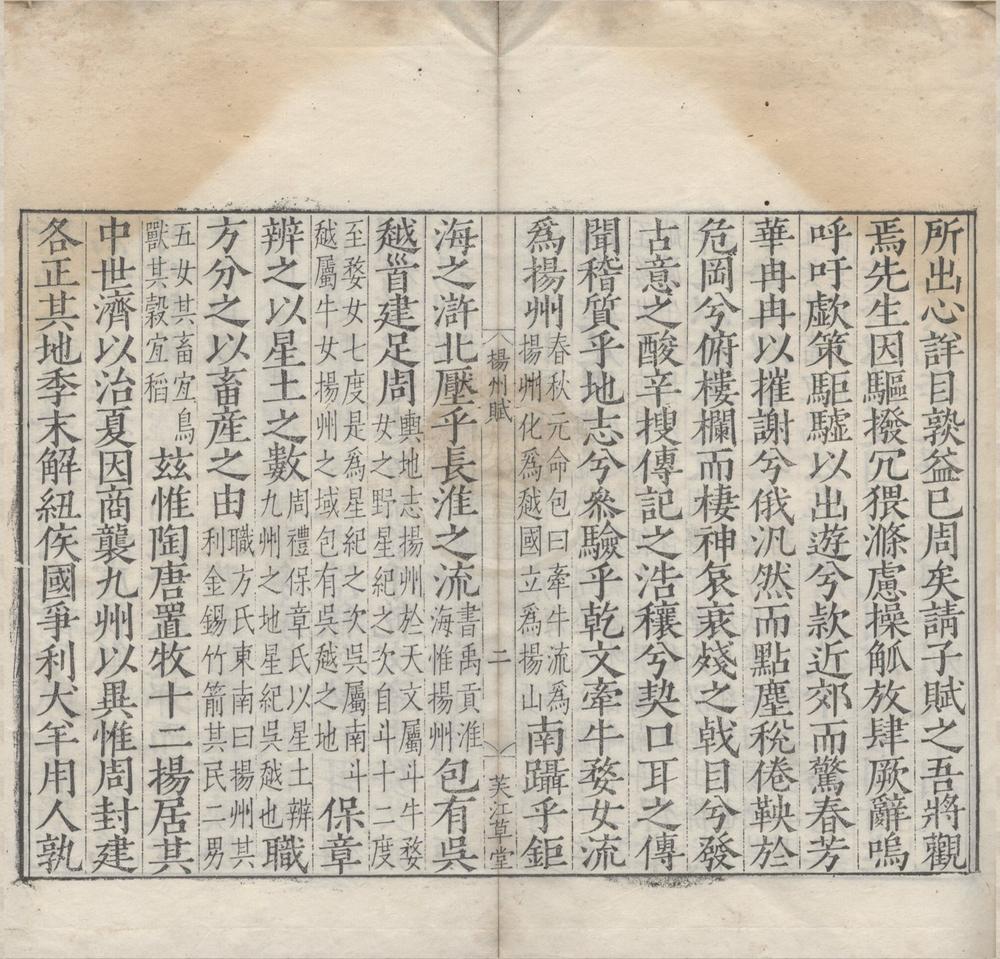 所出心詳目孰益已周矣請子賦之吾將觀
焉先生因驅撥冗猥滌慮操觚放肆厥辭嗚
呼吁歔策駏驉以出遊兮款近郊而驚春芳
華冉冉以摧謝兮俄汎然而點塵稅倦鞅於
危岡兮俯樓欄而棲神哀衰殘之戟目兮發
古意之酸辛搜傳記之浩穰兮契口耳之傳
聞稽質乎地志兮叅驗乎乾文牽牛婺女流
爲揚州春秋元命包曰牽牛流爲揚州化爲越國立爲揚山南躡乎鉅
揚州賦 二 芙江草堂
海之滸北壓乎長淮之流書禹貢淮海惟揚州包有吳
越首建足周輿地志揚州於天文屬斗牛婺女之野星紀之次自斗十二度
至婺女七度是爲星紀之次吳屬南斗越屬牛女揚州之域包有吳越之地保章
辨之以星土之數周禮保章氏以星土辨九州之地星紀吳越也職
方分之以畜産之由職方氏東南曰揚州其利金錫竹箭其民二男
五女其畜宜鳥獸其穀宜稻茲惟陶唐置牧十二揚居其
中世濟以治夏因商襲九州以異惟周封建
各正其地季末解紐侯國爭利犬羊用人孰